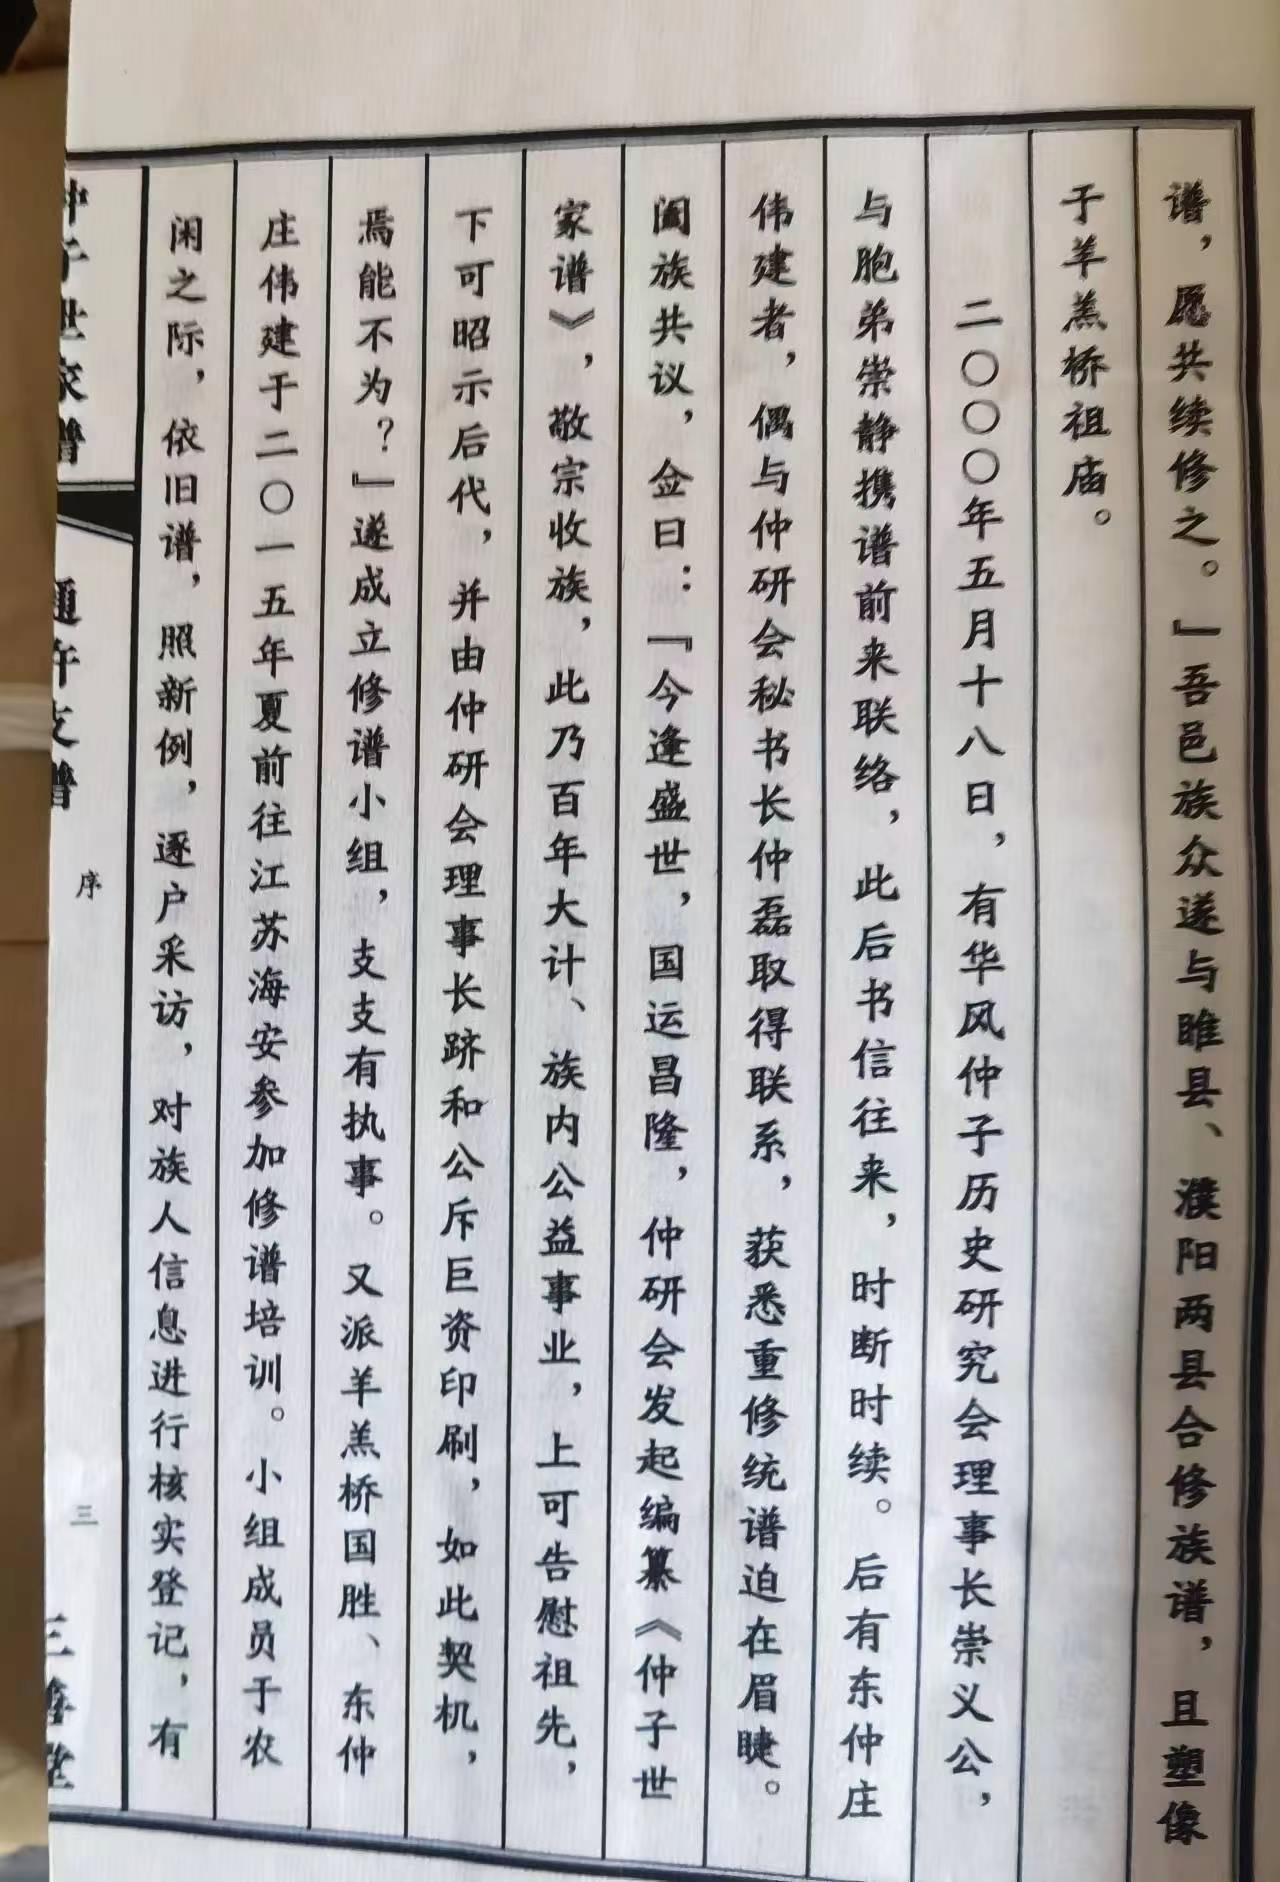 谱，愿共续修之。』吾邑族众遂与睢县、濮阳两县合修族谱，且塑像
于羊羔桥祖庙。
二〇〇〇年五月十八日，有华风仲子历史研究会理事长崇义公，
与胞弟崇静携谱前来联络，此后书信往来，时断时续。后有东仲庄
伟建者，偶与仲研会秘书长仲磊取得联系，获悉重修统谱迫在眉睫。
阖族共议，佥曰：『今逢盛世，国运昌隆，仲研会发起编纂《仲子世
家谱》，敬宗收族，此乃百年大计、族内公益事业，上可告慰祖先，
下可昭示后代，并由仲研会理事长跻和公斥巨资印刷，如此契机，
焉能不为？』遂成立修谱小组，支支有执事。又派羊羔桥国胜、东仲
庄伟建于二〇一五年夏前往江苏海安参加修谱培训。小组成员于农
闲之际，依旧谱，照新例，逐户采访，对族人信息进行核实登记，有
仲子世家谱
通许支谱
序
三
三善堂